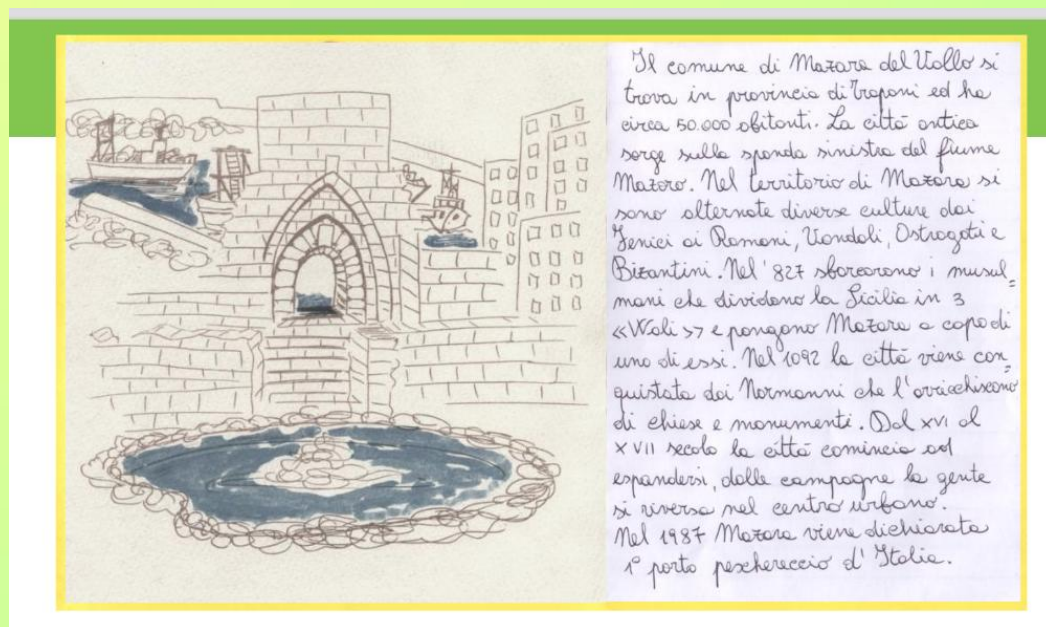 Il comune di Mazara del Vallo si
trova in provincia di Trapani ed ha
circa 50.000 abitanti. La città antica
sorge sulla sponda sinistra del fiume
Mazaro. Nel territorio di Mazara si
sono alternate diverse culture dai
Fenici ai Romani, Vandali, Ostrogoti e
Bizantini. Nel '827 sbarcarono i musul=
mani che dividono la Sicilia in 3
«Wali» e pongono Mazara a capo di
uno di essi. Nel 1092 la città viene con=
quistata dai Normanni che l'arricchiscono
di chiese e monumenti. Dal XVI al
XVII secolo la città comincia ad
espandersi, dalle campagne la gente
si riversa nel centro urbano.
Nel 1987 Mazara viene dichiarata
1° porto peschereccio d'Italia.